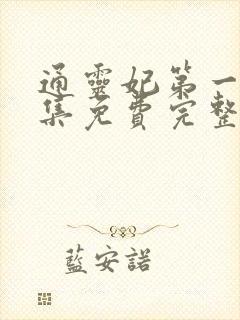 通靈妃第一
集免費完整
藍安諾